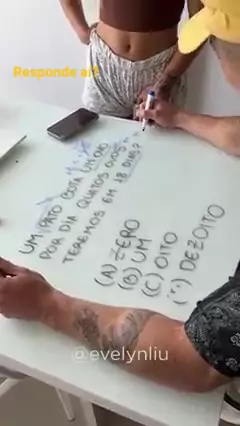 Responde aí?
UM PATO BOTA UM OVO
POR DIA QUATOS OVOS
TEREMOS EM 18 DIAS?
(A) ZERO
(B) UM
(C) OITO
(:) DEZOITO
@evelynliu